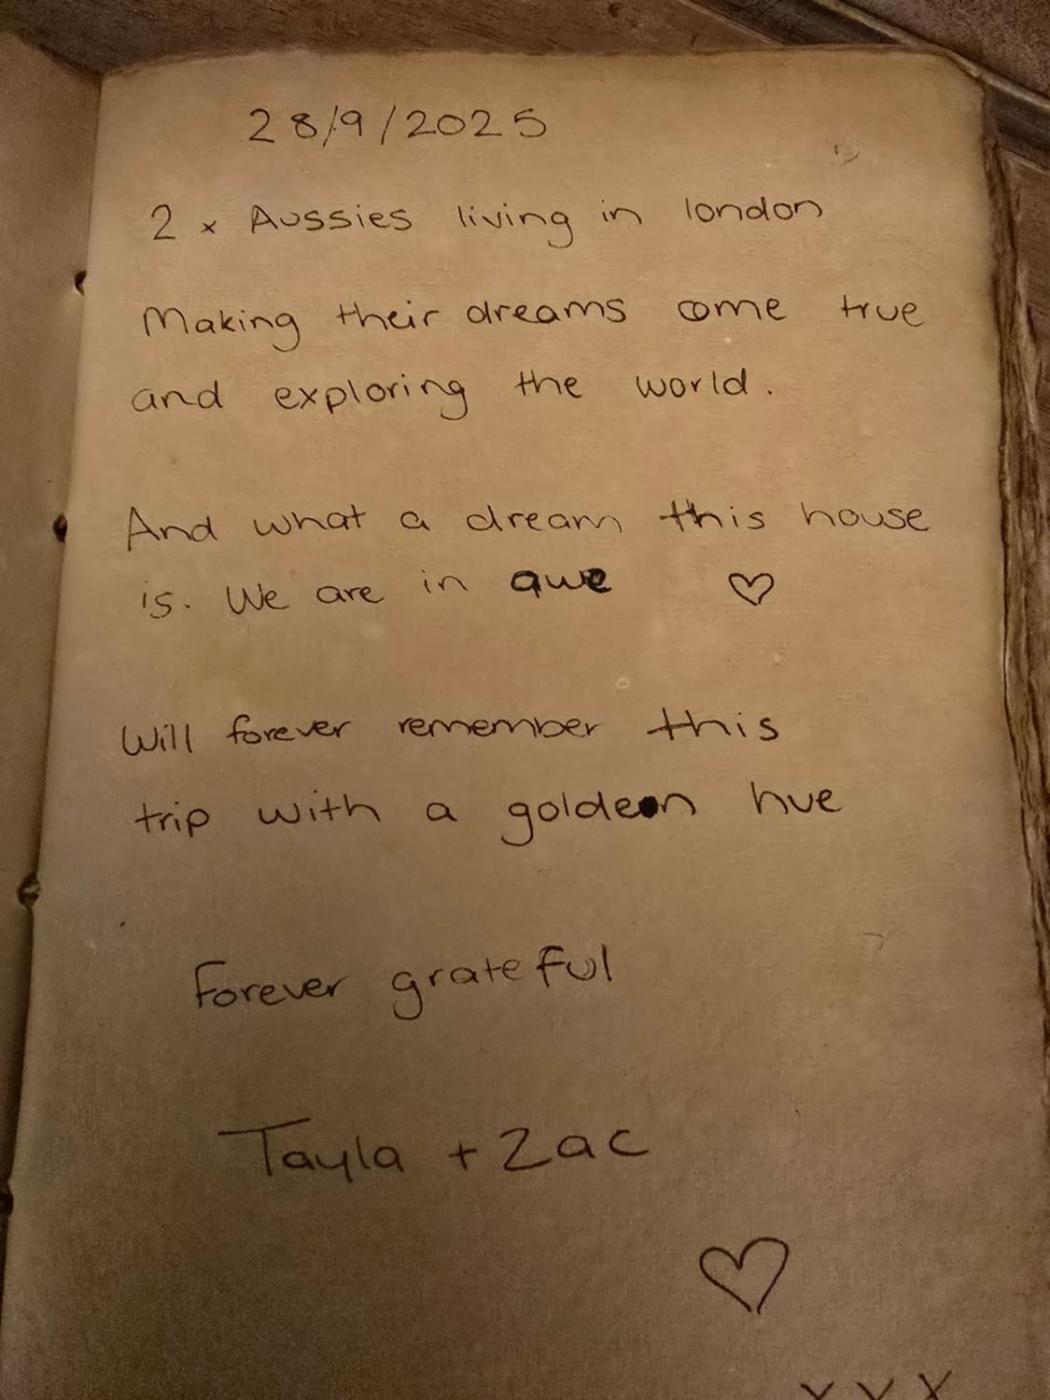 28/9/2025
2 x Aussies living in london
Making their dreams come true
and exploring the world.
And what a dream this house
is. We are in awe ♡
Will forever remember this
trip with a golden hue
Forever grateful
Tayla + Zac
♡
x x x